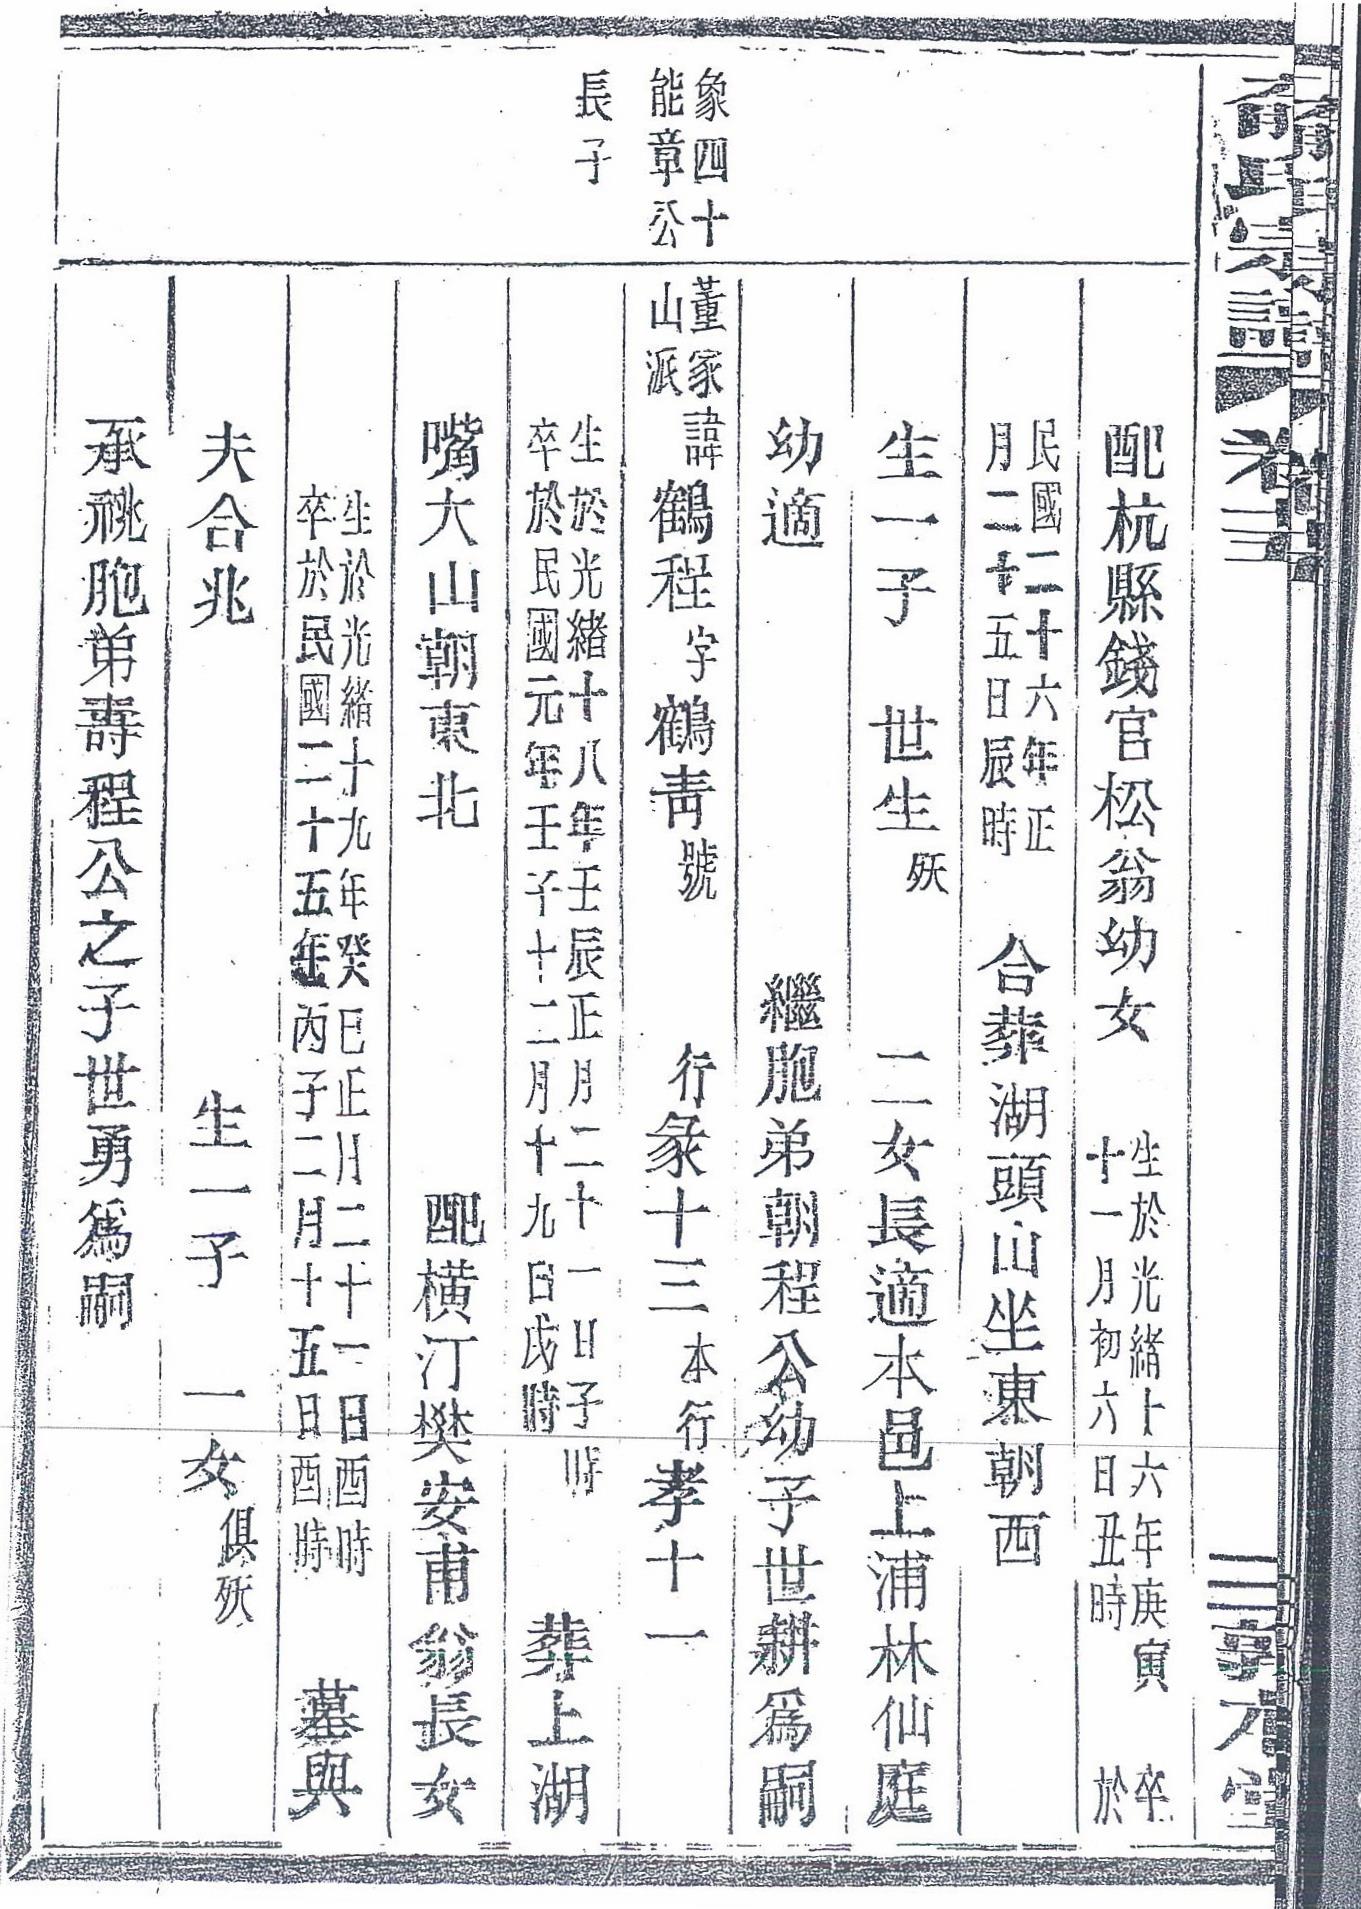 氏宗譜 卷三
配杭縣錢官松翁幼女 生於光緒十六年庚寅十一月初六日丑時 卒於
民國二十六年正月二十五日辰時 合葬湖頭山坐東朝西
生一子 世生 殀 二女長適本邑上浦林仙庭
幼適 繼胞弟朝程公幼子世耕爲嗣
象四十
能章公
長子
董家山派 諱鶴程字鶴靑號 行彖十三本行孝十一
生於光緒十八年壬辰正月二十一日子時
卒於民國元年壬子十二月十九日戌時 葬上湖
嘴大山朝東北 配橫汀樊安甫翁長女
生於光緒十九年癸巳正月二十一日酉時
卒於民國二十五年丙子二月十五日酉時 墓與
夫合兆 生一子 一女 俱殀
承祧胞弟壽程公之子世勇爲嗣